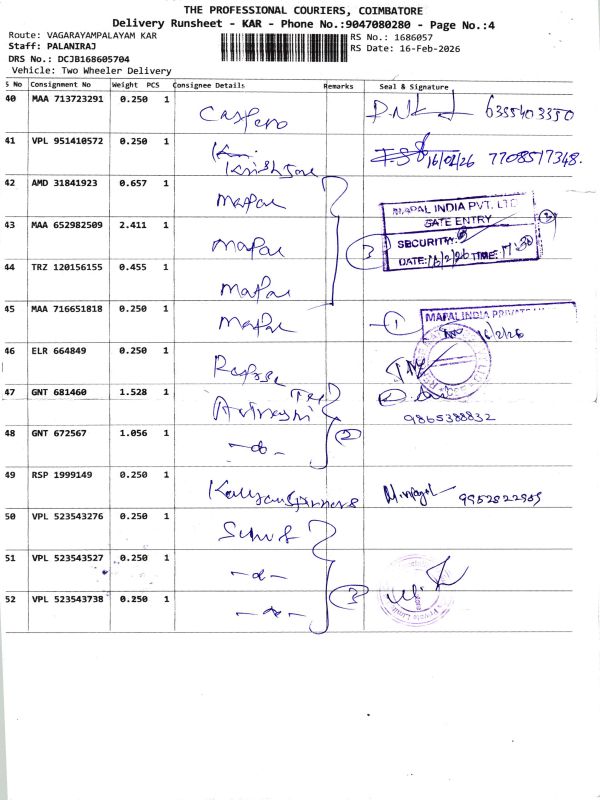 THE PROFESSIONAL COURIERS, COIMBATORE
Delivery Runsheet - KAR - Phone No.:9047080280 - Page No.:4
Route: VAGARAYAMPALAYAM KAR
RS No.: 1686057
Staff: PALANIRAJ
RS Date: 16-Feb-2026
DRS No.: DCJB168605704
Vehicle: Two Wheeler Delivery
S No Consignment No Weight PCS Consignee Details Remarks Seal & Signature
40 MAA 713723291 0.250 1 Caspero 6355403350
41 VPL 951410572 0.250 1 16/02/26 7708517348.
42 AMD 31841923 0.657 1 mapal
MAPAL INDIA PVT. LTD
GATE ENTRY
43 MAA 652982509 2.411 1 mapal 3
SECURITY:
DATE: 16/2/26 TIME: 17:30
44 TRZ 120156155 0.455 1 mapal
45 MAA 716651818 0.250 1 mapal 1
MAPAL INDIA PRIVATE
16/2/26
46 ELR 664849 0.250 1
47 GNT 681460 1.528 1 Avinashi
9865388832
48 GNT 672567 1.056 1 -do- 2
49 RSP 1999149 0.250 1
50 VPL 523543276 0.250 1
51 VPL 523543527 0.250 1 -do-
52 VPL 523543738 0.250 1 -do- 3